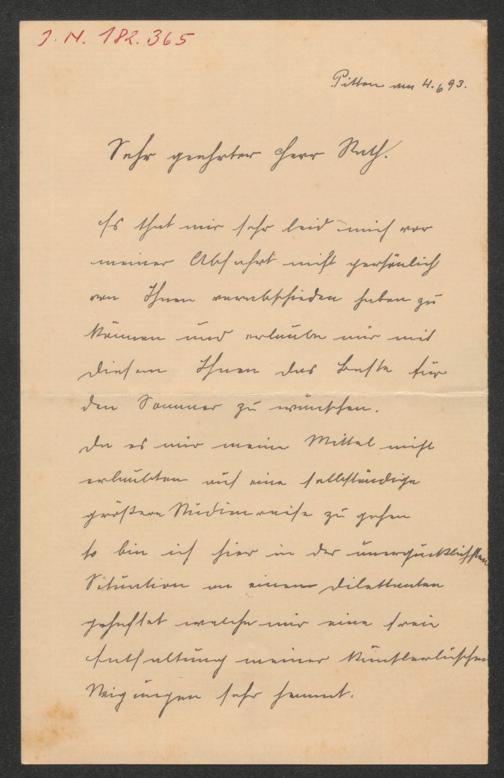 J. N. 182.365
Pitten am 4.6 93.
Sehr geehrter Herr Rath.
Es that mir sehr leid mich vor
meiner Abfahrt nicht persönlich
von Ihnen verabschieden haben zu
können und erlaube mir mit
diesen Ihnen das Beste für
den Sommer zu wünschen.
Da es mir meine Mittel nicht
erlaubten auf eine selbständige
größere Studienreise zu gehen
so bin ich hier in der unerquicklichsten
Situation an einem Dilettanten
geheftet welche mir eine freie
Entfaltung meiner künstlerischen
sehr hemmt.